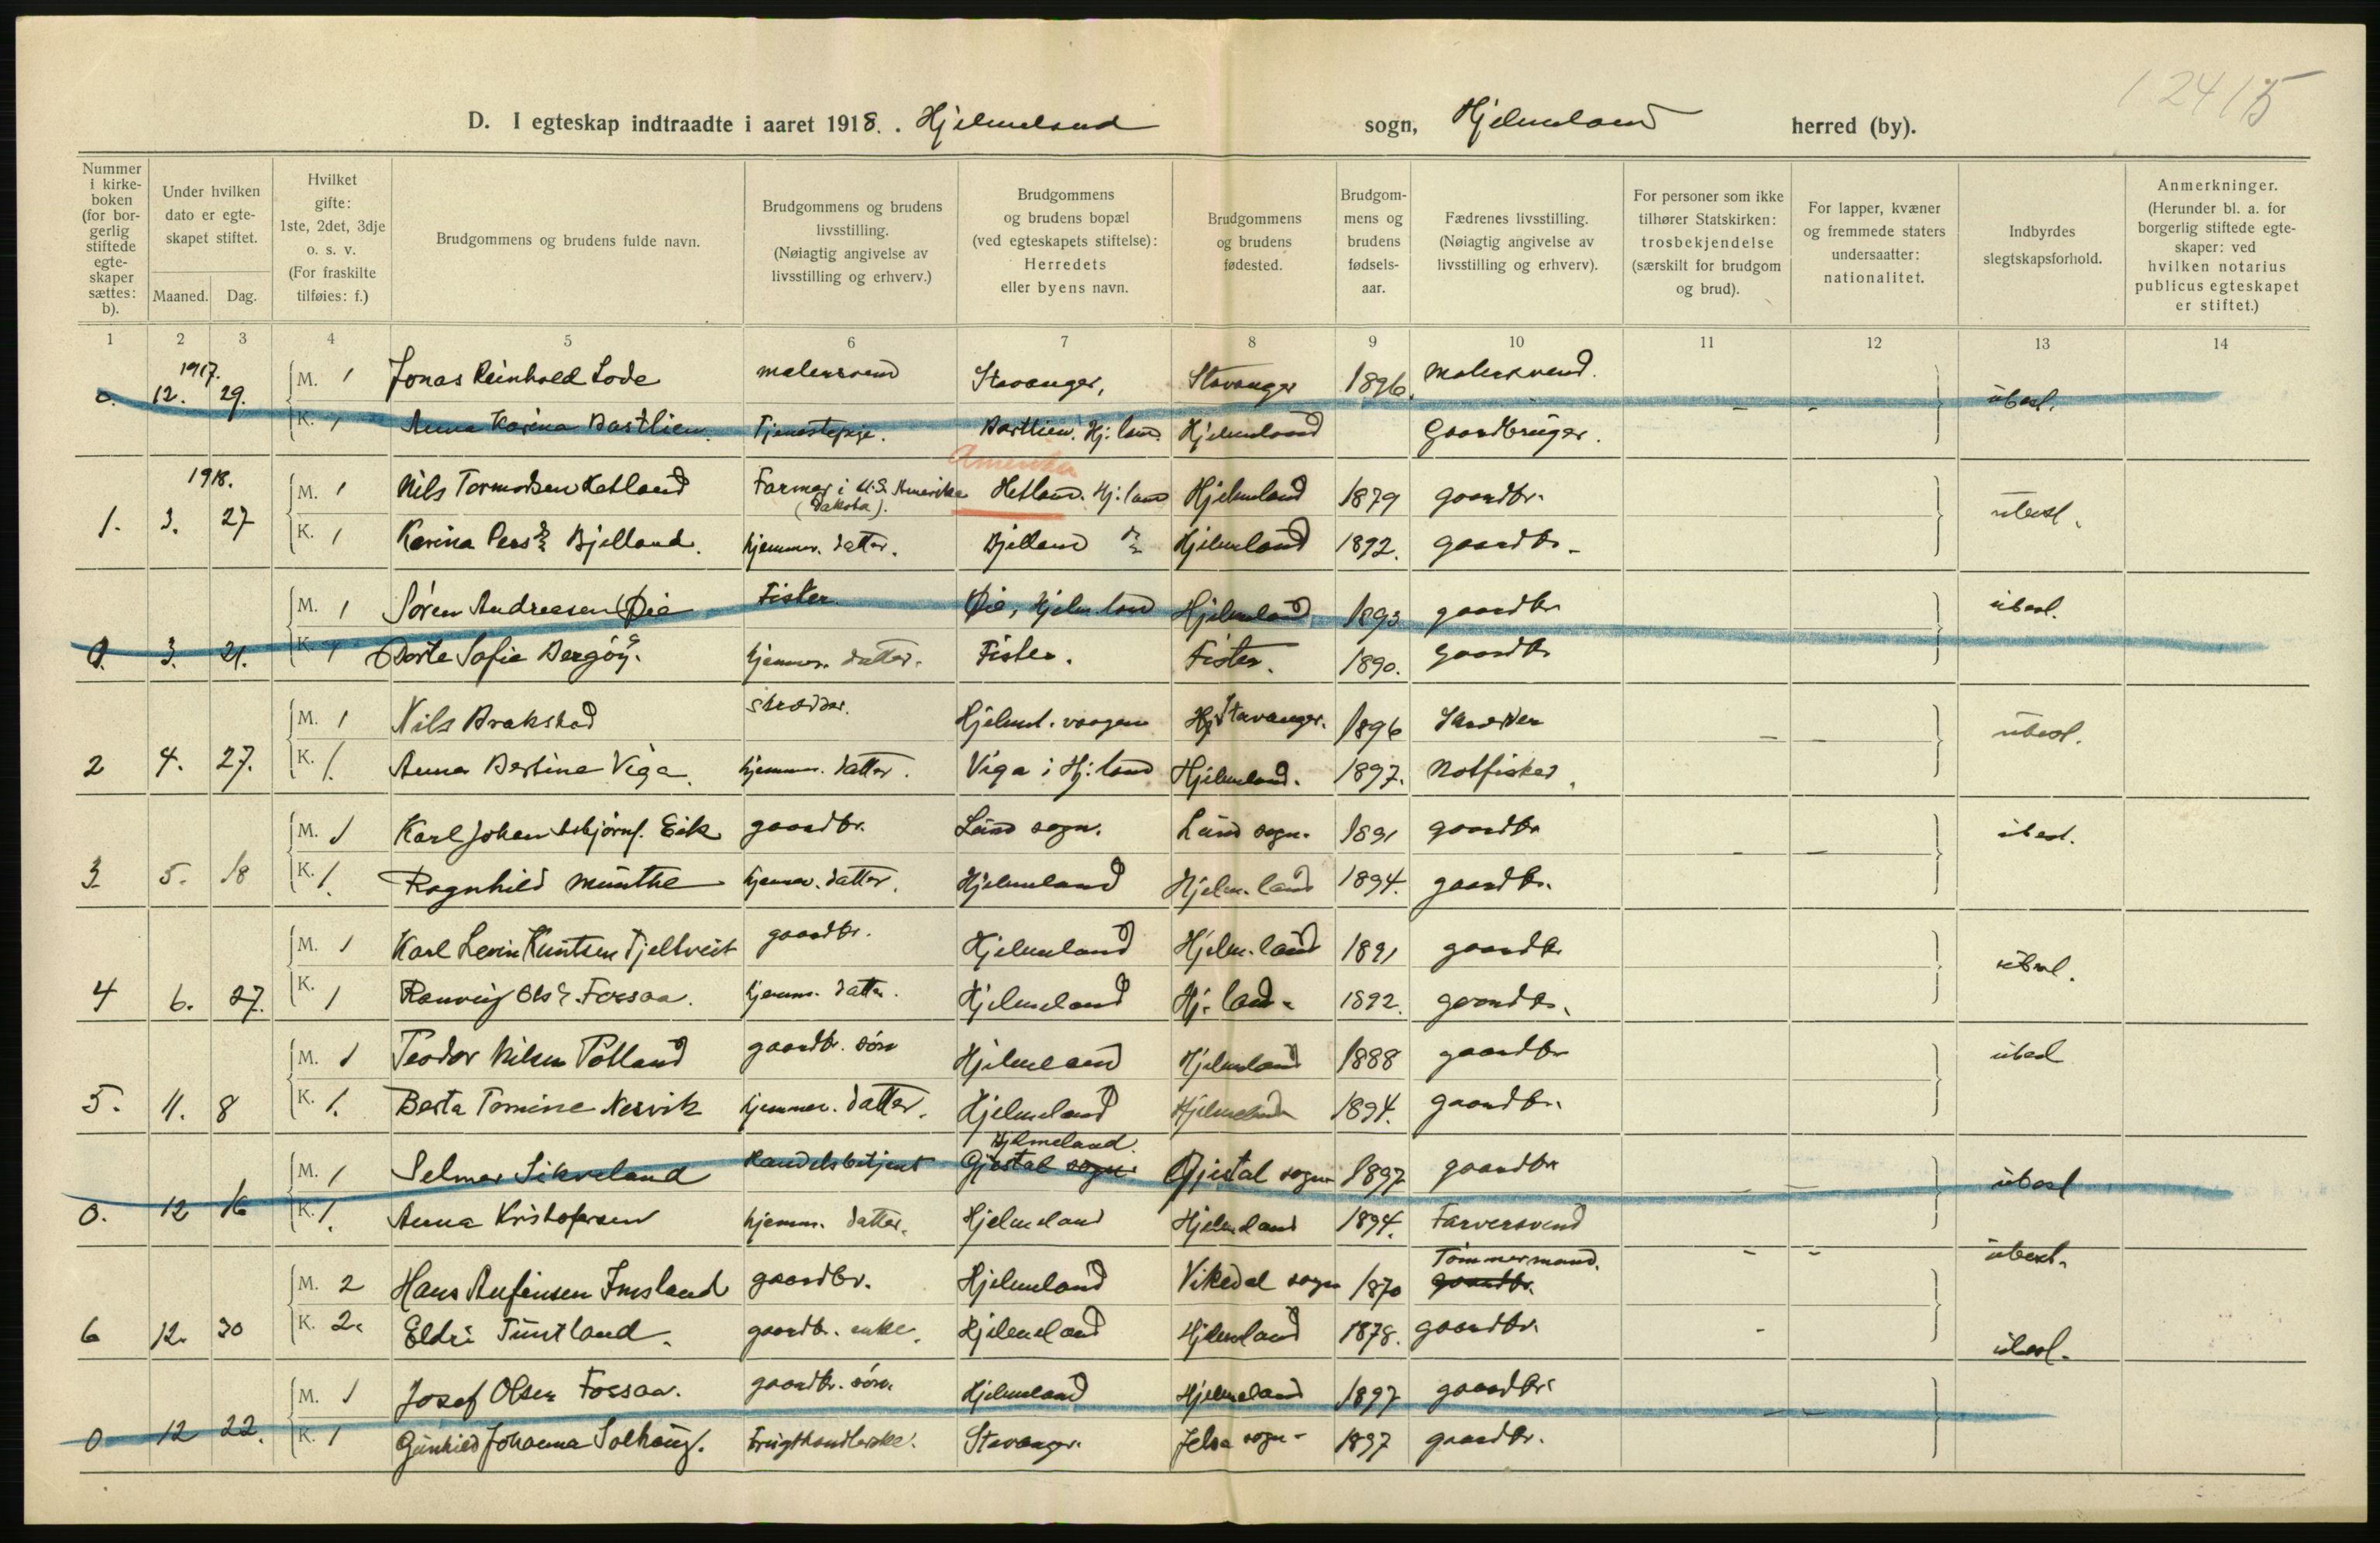 12415
D. I egteskap indtraadte i aaret 1918. Hjelmeland sogn, Hjelmeland herred (by).
Nummer i kirke- boken (for bor- gerlig stiftede egte- skaper sættes: b).
Under hvilken dato er egte- skapet stiftet.
Maaned. Dag.
Hvilket gifte: 1ste, 2det, 3dje o. s. v. (For fraskilte tilføies: f.)
Brudgommens og brudens fulde navn.
Brudgommens og brudens livsstilling. (Nøiagtig angivelse av livsstilling og erhverv.)
Brudgommens og brudens bopæl (ved egteskapets stiftelse): Herredets eller byens navn.
Brudgommens og brudens fødested.
Brudgom- mens og brudens fødsels- aar.
Fædrenes livsstilling. (Nøiagtig angivelse av livsstilling og erhverv).
For personer som ikke tilhører Statskirken: trosbekjendelse (særskilt for brudgom og brud).
For lapper, kvæner og fremmede staters undersaatter: nationalitet.
Indbyrdes slegtskapsforhold.
Anmerkninger. (Herunder bl. a. for borgerlig stiftede egte- skaper: ved hvilken notarius publicus egteskapet er stiftet.)
1 2 3 4 5 6 7 8 9 10 11 12 13 14
1917.
0. 12. 29. M. 1 Jonas Reinhold Lode malersvend Stavanger, Stavanger 1896. Malersvend. ubesl.
K. 1 Anna Karina Bastlien. Tjenestepige. Bastlien. Hj:land Hjelmeland Gaardbruger.
1918. Amerika
1. 3. 27 M. 1 Nils Tormodsen Hetland Farmer i U.S. Amerika (Dakota). Hetland. Hj:land Hjelmeland 1879 gaardbr. ubesl.
K. 1 Karina Persd. Bjelland. hjemmev. datter. Bjelland Hjelmeland 1892. gaardbr.
0. 3. 21. M. 1 Søren Andreesen Øie Fister. Øie, Hjelmeland Hjelmeland 1893 gaardbr ubesl.
K. 1 Dorte Sofie Bergöy. hjemmev. datter. Fister. Fister. 1890. gaardbr
2 4. 27. M. 1 Nils Brakstad skrædder. Hjelmel. vaagen Hj Stavanger. 1896 Skredder ubesl.
K. 1. Anna Bertine Viga. hjemmev. datter. Viga i Hj:land Hjelmeland. 1897. Notfisker.
3 5. 18 M. 1 Karl Johan Asbjørns. Eik gaardbr. Lund sogn. Lund sogn. 1891 gaardbr ubesl.
K. 1. Ragnhild Munthe hjemmev. datter. Hjelmeland Hjelm.land 1894. gaardbr.
4 6. 27. M. 1 Karl Levin Knutsen Tjeltveit gaardbr. Hjelmeland Hjelm.land 1891 gaardbr ubesl.
K. 1 Ranveig Olsd. Fossaa. hjemm. datter. Hjelmeland Hj.land. 1892. gaardbr.
5. 11. 8 M. 1 Teodor Nilsen Tøtland gaardbr. søn Hjelmeland Hjelmeland 1888 gaardbr ubesl
K. 1. Berta Tomine Nesvik hjemmev. datter. Hjelmeland Hjelmeland 1894. gaardbr.
Hjelmeland.
0. 12 16 M. 1 Selmer Sikveland Handelsbetjent Gjestal sogn. Gjestal sogn 1897 gaardbr ubesl
K. 1. Anna Kristofersen hjemm. datter. Hjelmeland Hjelmeland 1894. Farversvend
Tømmermand.
6 12. 30 M. 2 Hans Aufinsen Imsland gaardbr. Hjelmeland Vikedal sogn 1870 gaardbr. ubesl.
K. 2. Eldri Tuntland. gaardbr. enke. Hjelmeland Hjelmeland 1878. gaardbr.
0 12 22. M. 1 Josef Olsen Fossaa. gaardbr. søn. Hjelmeland Hjelmeland 1897 gaardbr. ubesl.
K. 1 Gunhild Johanna Solhaug. Frugthandlerske. Stavanger. Jelsa sogn 1897 gaardbr.